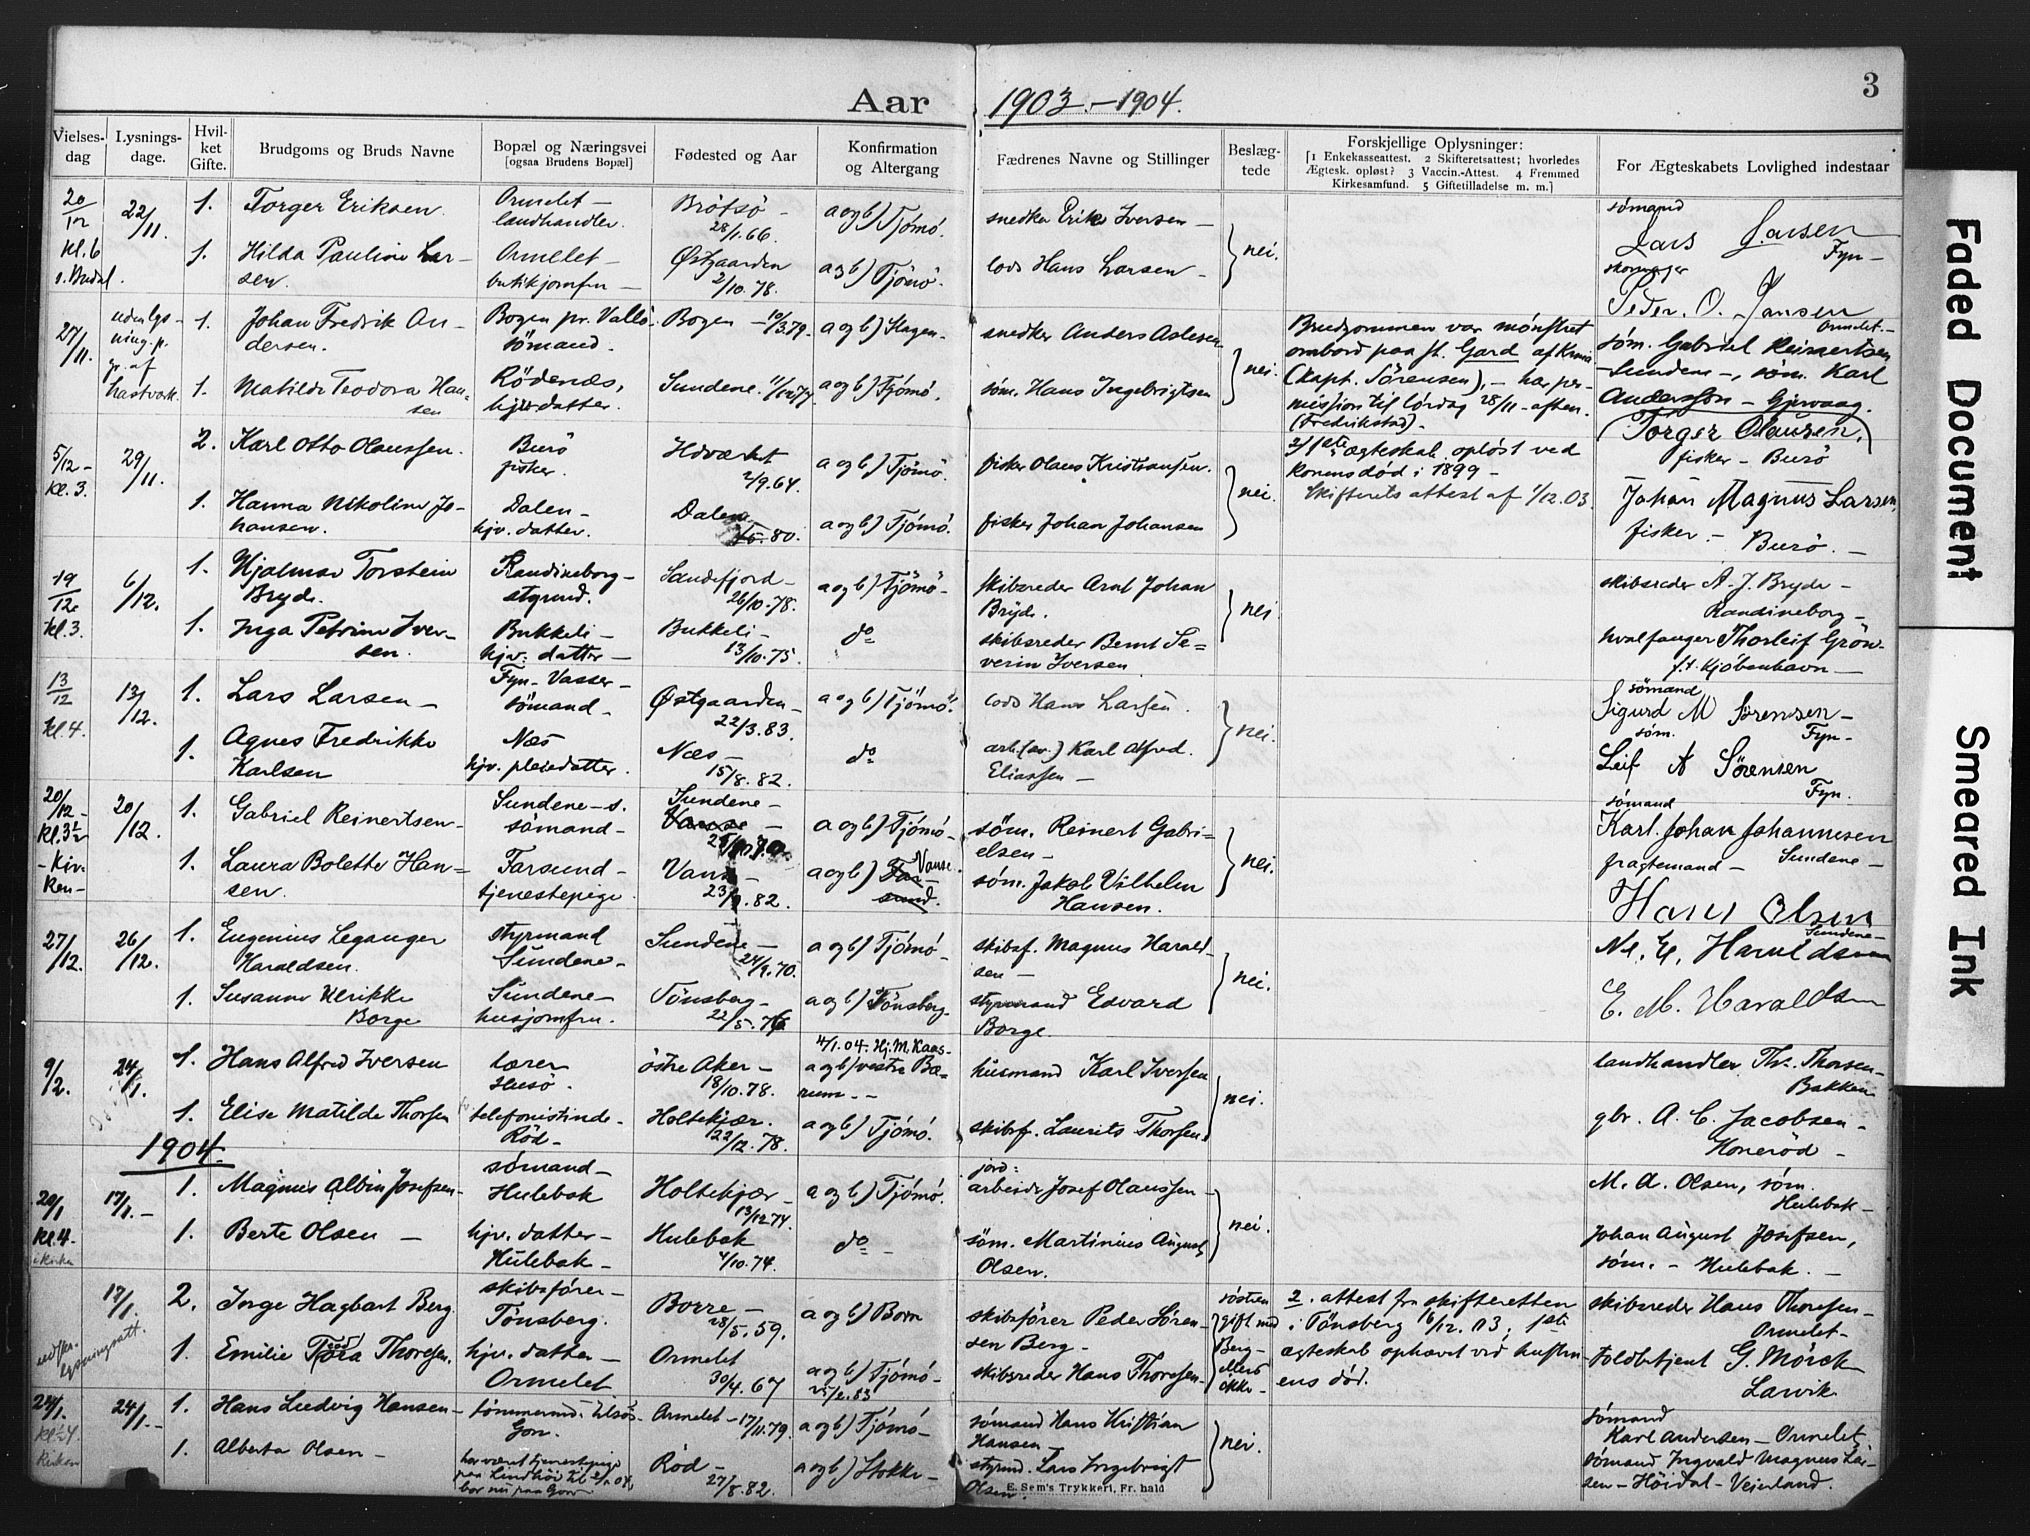 3
Aar 1903.-1904.
Vielses-dag
Lysnings-dage.
Hvil-ket Gifte.
Brudgoms og Bruds Navne
Bopæl og Næringsvei
[ogsaa Brudens Bopæl]
Fødested og Aar
Konfirmation
og Altergang
Fædrenes Navne og Stillinger
Beslæg-tede
Forskjellige Oplysninger:
[1 Enkekasseattest. 2 Skifteretsattest; hvorledes
Ægtesk. opløst? 3 Vaccin.-Attest. 4 Fremmed
Kirkesamfund. 5 Giftetilladelse m. m.]
For Ægteskabets Lovlighed indestaar
20/12 kl. 6
22/11.
1. Torger Eriksen.
Ormelet - landhandler.
Brötsö - 28/1.66.
a og b) Tjömö.
snedker Eriks Iversen -
nei.
sømand Lars Larsen Fyn -
1. Hilda Pauline Lar-sen.
Ormelet - butikjomfru -
Østgaarden 2/10.78.
a og b) Tjömö.
lods Hans Larsen -
skomager Peder. O. Jansen Ormelet. -
27/11.
uden lys-ning. p. gr. af hastværk.
1. Johan Fredrik An-dersen.
Bogen pr. Vallö. sömand.
Bogen - 10/3.79.
a og b) Slagen -
snedker Anders Aslesen
nei.
Brudgommen var mönstret
ombord paa sk. Gard af
(Kapt. Sörensen), - har per-
mission til lördag 28/11 - aften.
(Fredrikstad) -
söm. Gabriel Reinertsen
- Sundene -, söm. Karl
Andersson - Gjervaag.
1. Matilde Teodora Han-sen
Rödenæs, hjv. datter.
Sundene.
a og b) Tjömö.
söm. Hans Ingebrigtsen
5/12 - kl. 3.
29/11.
2. Karl Otto Olaussen.
Burö fisker.
2/9.64.
a og b) Tjömö
fisker Olaus Kristiansen.
nei.
2) 1ste ægteskab opløst ved
konens död i 1899 -
Skifterets attest af 1/12.03.
(Torger Olausen.) fisker - Burö
1. Hanna Nikoline Jo-hansen.
Dalen - hjv. datter.
Dalen .80.
a og b) Tjömö.
fisker Johan Johansen
Johan Magnus Larsen,
fisker. - Burö. -
19/12. kl. 3.
6/12.
1. Hjalmar Torstein Bryde.
Randineborg - styrmd.
Sandefjord - 26/10.78.
a og b) Tjömö -
skibsreder Arnt Johan Bryde.
nei
skibsreder A. J. Bryde -
Randineborg -
1. Inga Petrine Iver-sen.
Bukkeli - hjv. datter -
Bukkeli - 13/10.75.
do
skibsreder Bernt Se-verin Iversen
hvalfanger Thorleif Grön -
f.t. Kjöbenhavn -
13/12 kl. 4.
13/12.
1. Lars Larsen -
Fyn - Vasser - sömand -
Østgaarden - 22/3.83.
a og b) Tjömö.
lods Hans Larsen.
nei.
sömand Sigurd M Sörensen - Fyn -
1. Agnes Fredrikke Karlsen
Næs hjv. pleiedatter.
Næs - 15/8.82.
do
arb. (sv.) Karl Alfred. Eliassen -
söm. Leif A Sörensen Fyn.
20/12 - kl. 3½ - Kir-ken -
20/12.
1. Gabriel Reinertsen -
Sundene - s. sömand -
Sundene - Vanse -
a og b) Tjömö -
söm. Reinert Gabri-elsen -
nei.
sömand Karl. Johan Johannesen
fragtemand - Sundene -
1. Laura Bolette Han-sen.
Farsund - tjenestepige.
Vanse - 23/9.82.
a og b) Far-sund. Vanse.
söm. Jakob Vilhelm Hansen.
Hans Olsen Sundene -
27/12.
26/12.
1. Eugenius Leganger Haraldsen.
styrmand Sundene -
Sundene - 24/9.70.
a og b) Tjömö -
skibsf. Magnus Harald-sen -
nei.
M. E. Haraldsen
1. Susanne Ulrikke Borge
Sundene - husjomfru.
Tönsberg - 22/5.76
a og b) Tönsberg -
styrmand Edvard Borge.
E. M. Haraldsen
9/2.
24/1.
1. Hans Alfred Iversen
lærer Husö.
östre Aker - 18/10.78.
4/1.04. Hj. M. Kaas -
a og b) vestre Bæ-rum - -
husmand Karl Iversen
nei.
landhandler Thr. Thorsen -
Bakken
1. Elise Matilde Thorsen
telefonistinde - Röd -
Holtekjær. 22/12.78.
a og b) Tjömö.
skibsf. Laurits Thorsen
gbr. A. C. Jacobsen -
Honeröd -
1904.
29/1 kl. 4 - i kirken
17/1. -
1. Magnus Albin Josefsen -
sömand - Hulebak
Holtekjær - 13/12.74.
a og b) Tjömö.
jord: arbeider Josef Olaussen -
nei.
M. A. Olsen, söm.
Hulebak -
1. Berte Olsen -
hjv. datter - Hulebak -
Hulebak /10.74.
do -
söm. Martinius August Olsen.
Johan August Josefsen,
söm. - Hulebak. -
17/1.
lysningsatt.
2. Inge Hagbart Berg.
skibsförer - Tönsberg.
Borre - 28/5.59.
a og b) Borre
skibsförer Peder Sören-sen Berg -
söstren gift med Berg - ellers ikke -
2. attest fra skifteretten
i Tönsberg 16/12.03; 1ste
ægteskab ophævet ved hustru-
ens död.
skibsreder Hans Thoresen -
Ormelet -
1. Emilie Tora Thoresen.
hjv. datter - Ormelet
Ormelet 30/4.67
a og b) Tjömö -
skibsreder Hans Thoresen -
Toldbetjent G. Mörch
Larvik
24/1. kl. 4. Kirken
24/1. -
1. Hans Ludvig Hansen -
tömmermd. tilsös Gon.
Ormelet - 17/11.79.
a og b) Tjömö -
sömand Hans Kristian Hansen -
nei.
sömand
Karl Andersen - Ormelet,
1. Alberta Olsen -
har været tjenestepige
paa Lindhöi til
bor nu paa Gon -
Röd - 27/8.82.
a og b) Stokke -
styrmd. Lars Ingebrigt Olsen.
sömand Ingvald Magnus Lar-
sen - Höidal - Veierland.
E. Sem's Trykkeri, Fr. hald
Faded Document
Smeared Ink